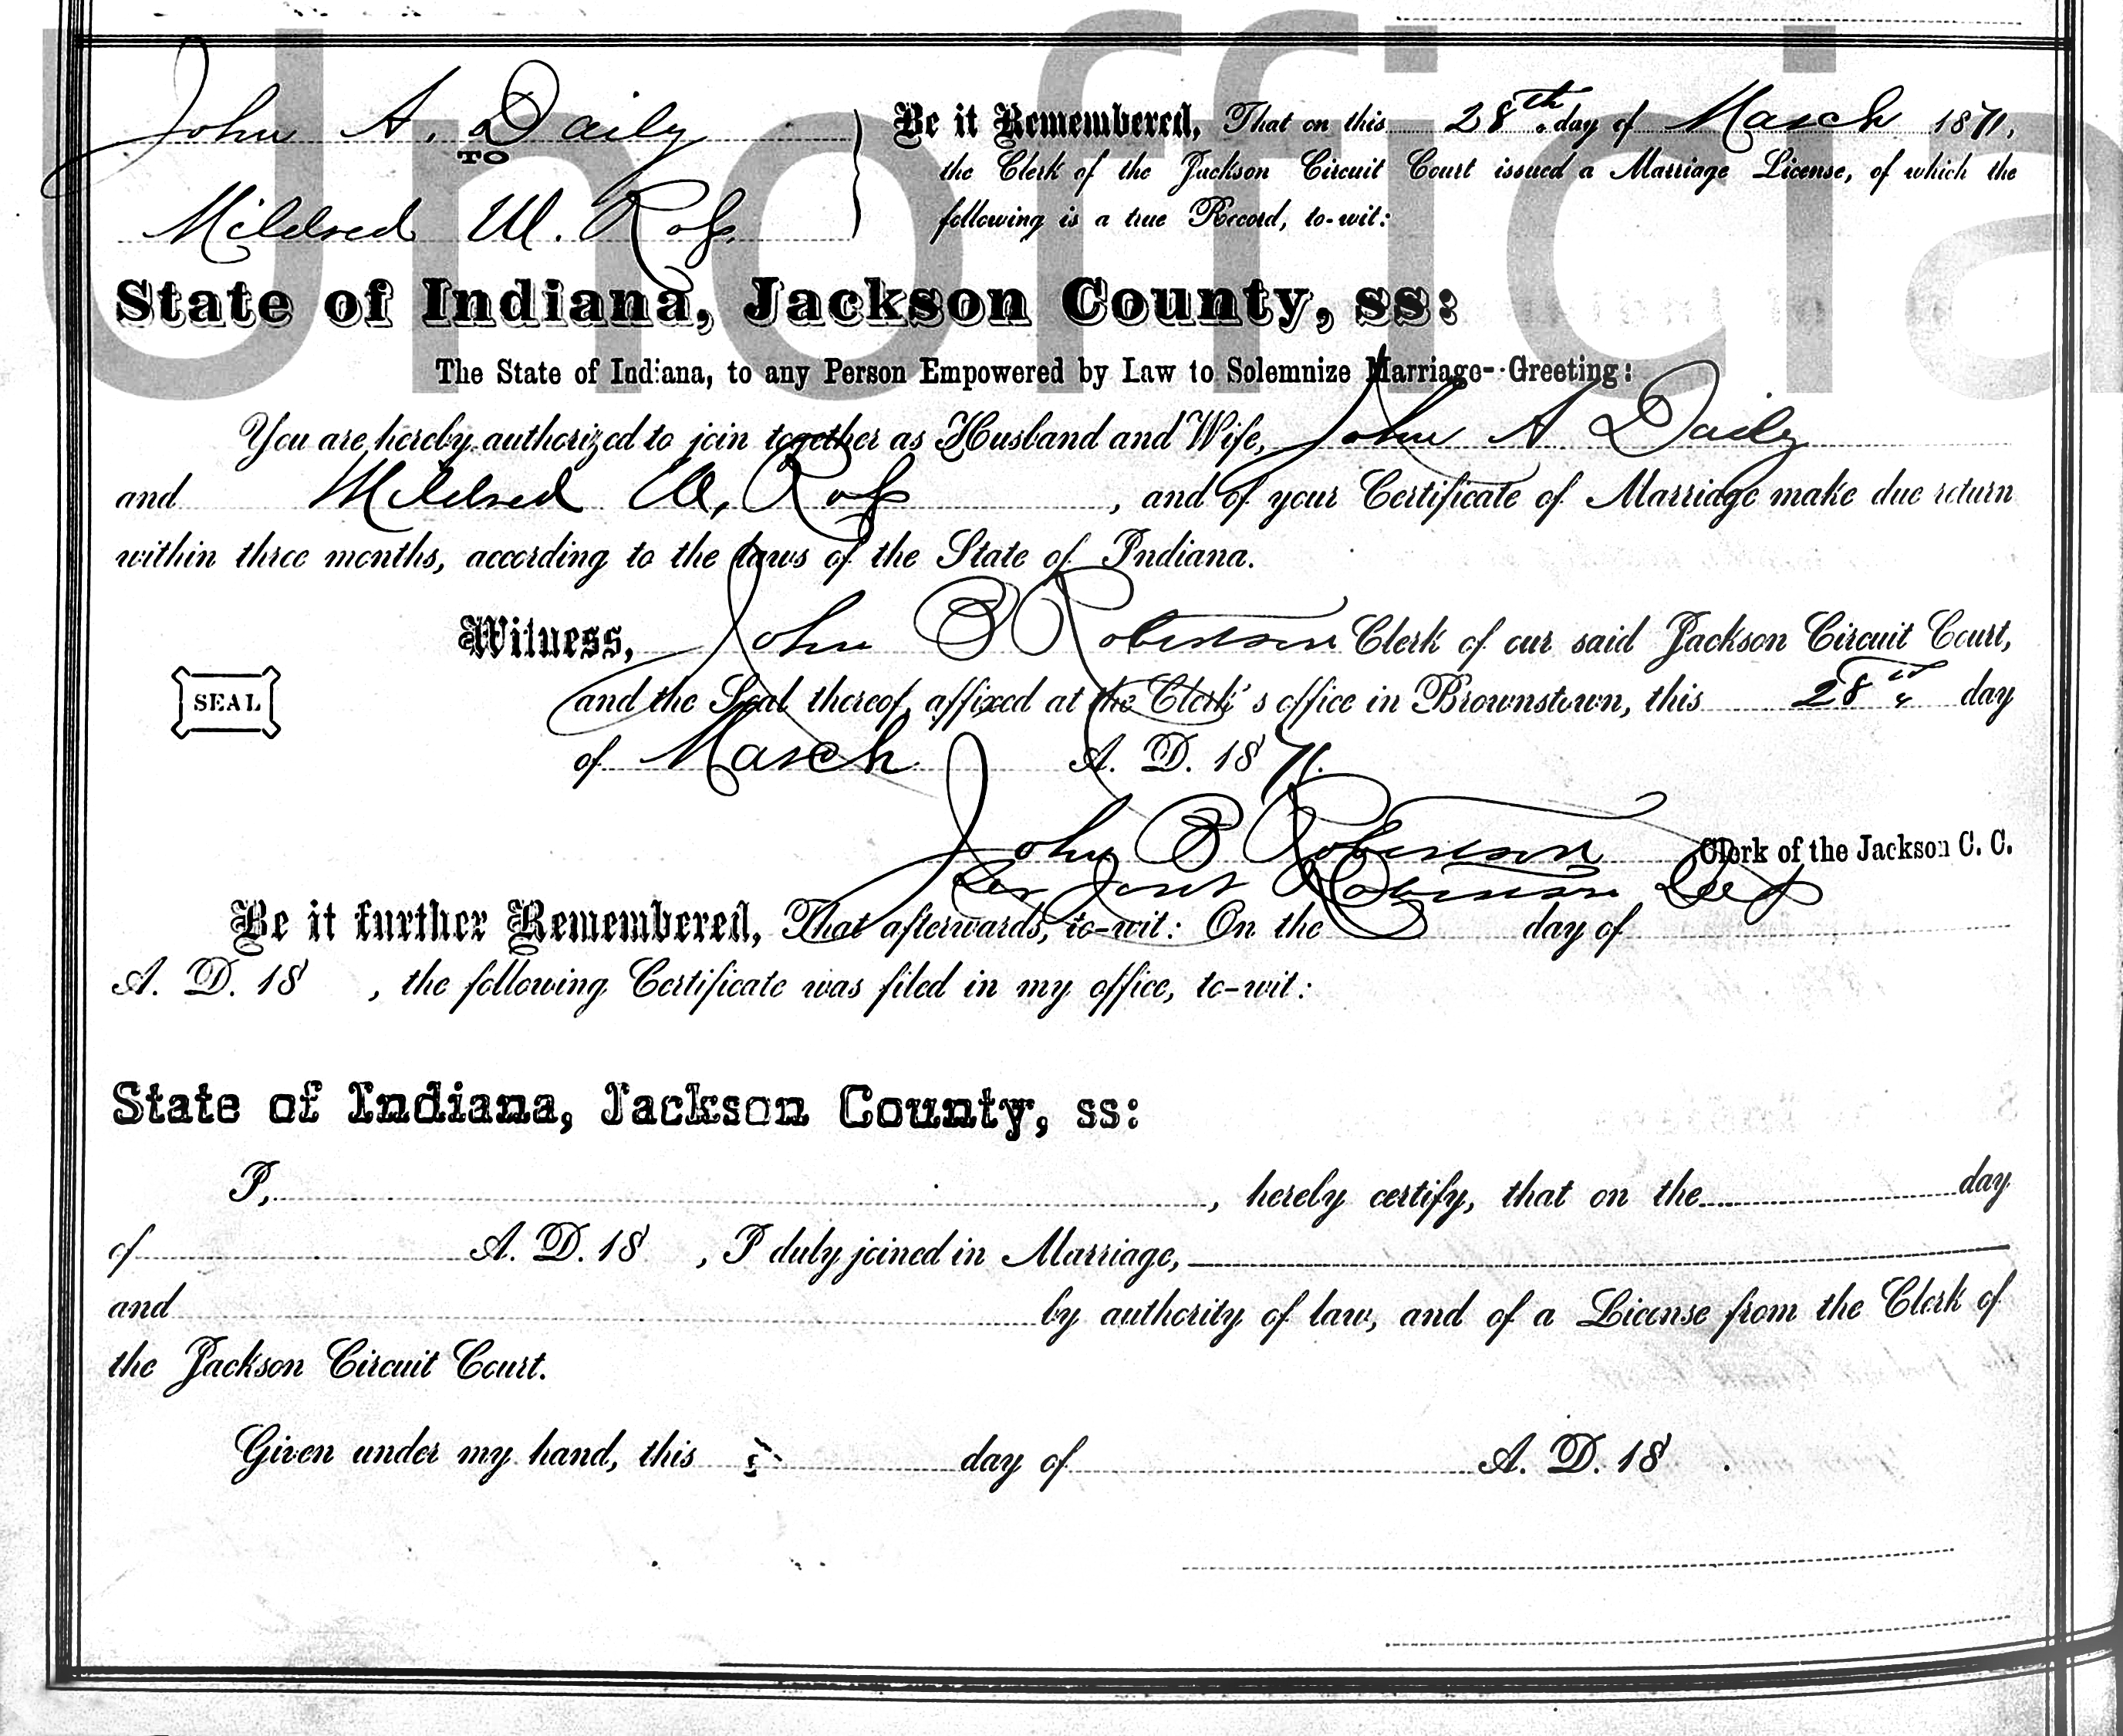 Unofficia
John A. Daily
TO
Mildred W. Ross
Be it Remembered, That on this 28th day of March 1871,
the Clerk of the Jackson Circuit Court issued a Marriage License, of which the
following is a true Record, to-wit:
State of Indiana, Jackson County, ss:
The State of Indiana, to any Person Empowered by Law to Solemnize Marriage--Greeting:
You are hereby authorized to join together as Husband and Wife, John A Daily
and Mildred W. Ross, and of your Certificate of Marriage make due return
within three months, according to the laws of the State of Indiana.
Witness, John B Robertson Clerk of our said Jackson Circuit Court,
SEAL
and the Seal thereof, affixed at the Clerk's office in Brownstown, this 28th day
of March A. D. 1871.
John B Robertson Clerk of the Jackson C. C.
Per Robertson Dep
Be it further Remembered, That afterwards, to-wit: On the day of
A. D. 18 , the following Certificate was filed in my office, to-wit:
State of Indiana, Jackson County, ss:
I, , hereby certify, that on the day
of A. D. 18 , I duly joined in Marriage,
and by authority of law, and of a License from the Clerk of
the Jackson Circuit Court.
Given under my hand, this day of A. D. 18 .